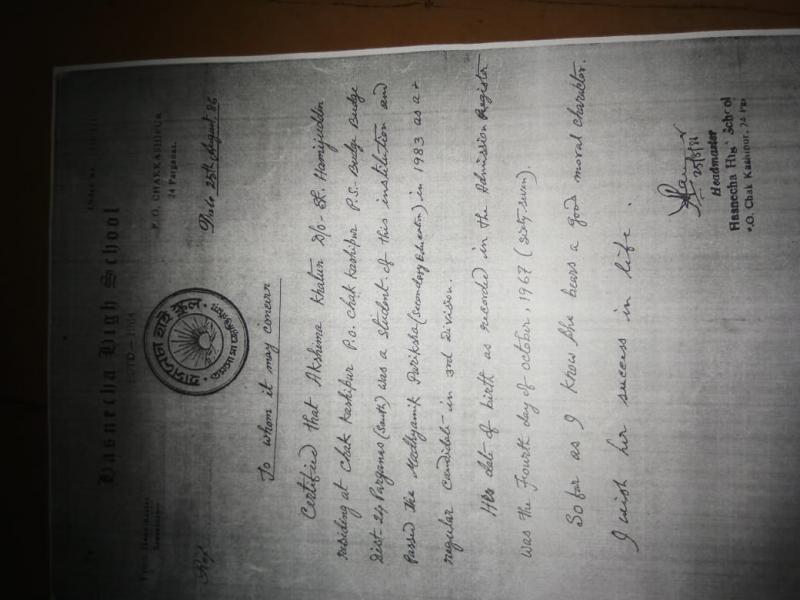 Hasnecha High School
P.O. CHAKKASHIPUR
24 Parganas.
Date 25th August, 86
To whom it may concern
Certified that Akshema Khatun D/o- SK. Hamijuddin
residing at Chak Kashipur P.o. Chak Kashipur P.S.- Budge Budge
Dist- 24 Parganas (South) was a student of this institution and
Passed the Madhyamik Pariksha (Secondary Education) in 1983 as a
regular candidate in 3rd Division.
Her date of birth as recorded in the Admission Register
was the Fourth day of October, 1967 (sixty-seven).
So far as I know she bears a good moral character.
I wish her success in life.
25/8/86
Headmaster
Hasnecha High School
P.O. Chak Kashipur, 24 Par